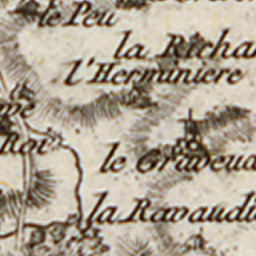 le Peu
la Richar
l'Herminiere
Roi
le Graveud
la Ravaudi